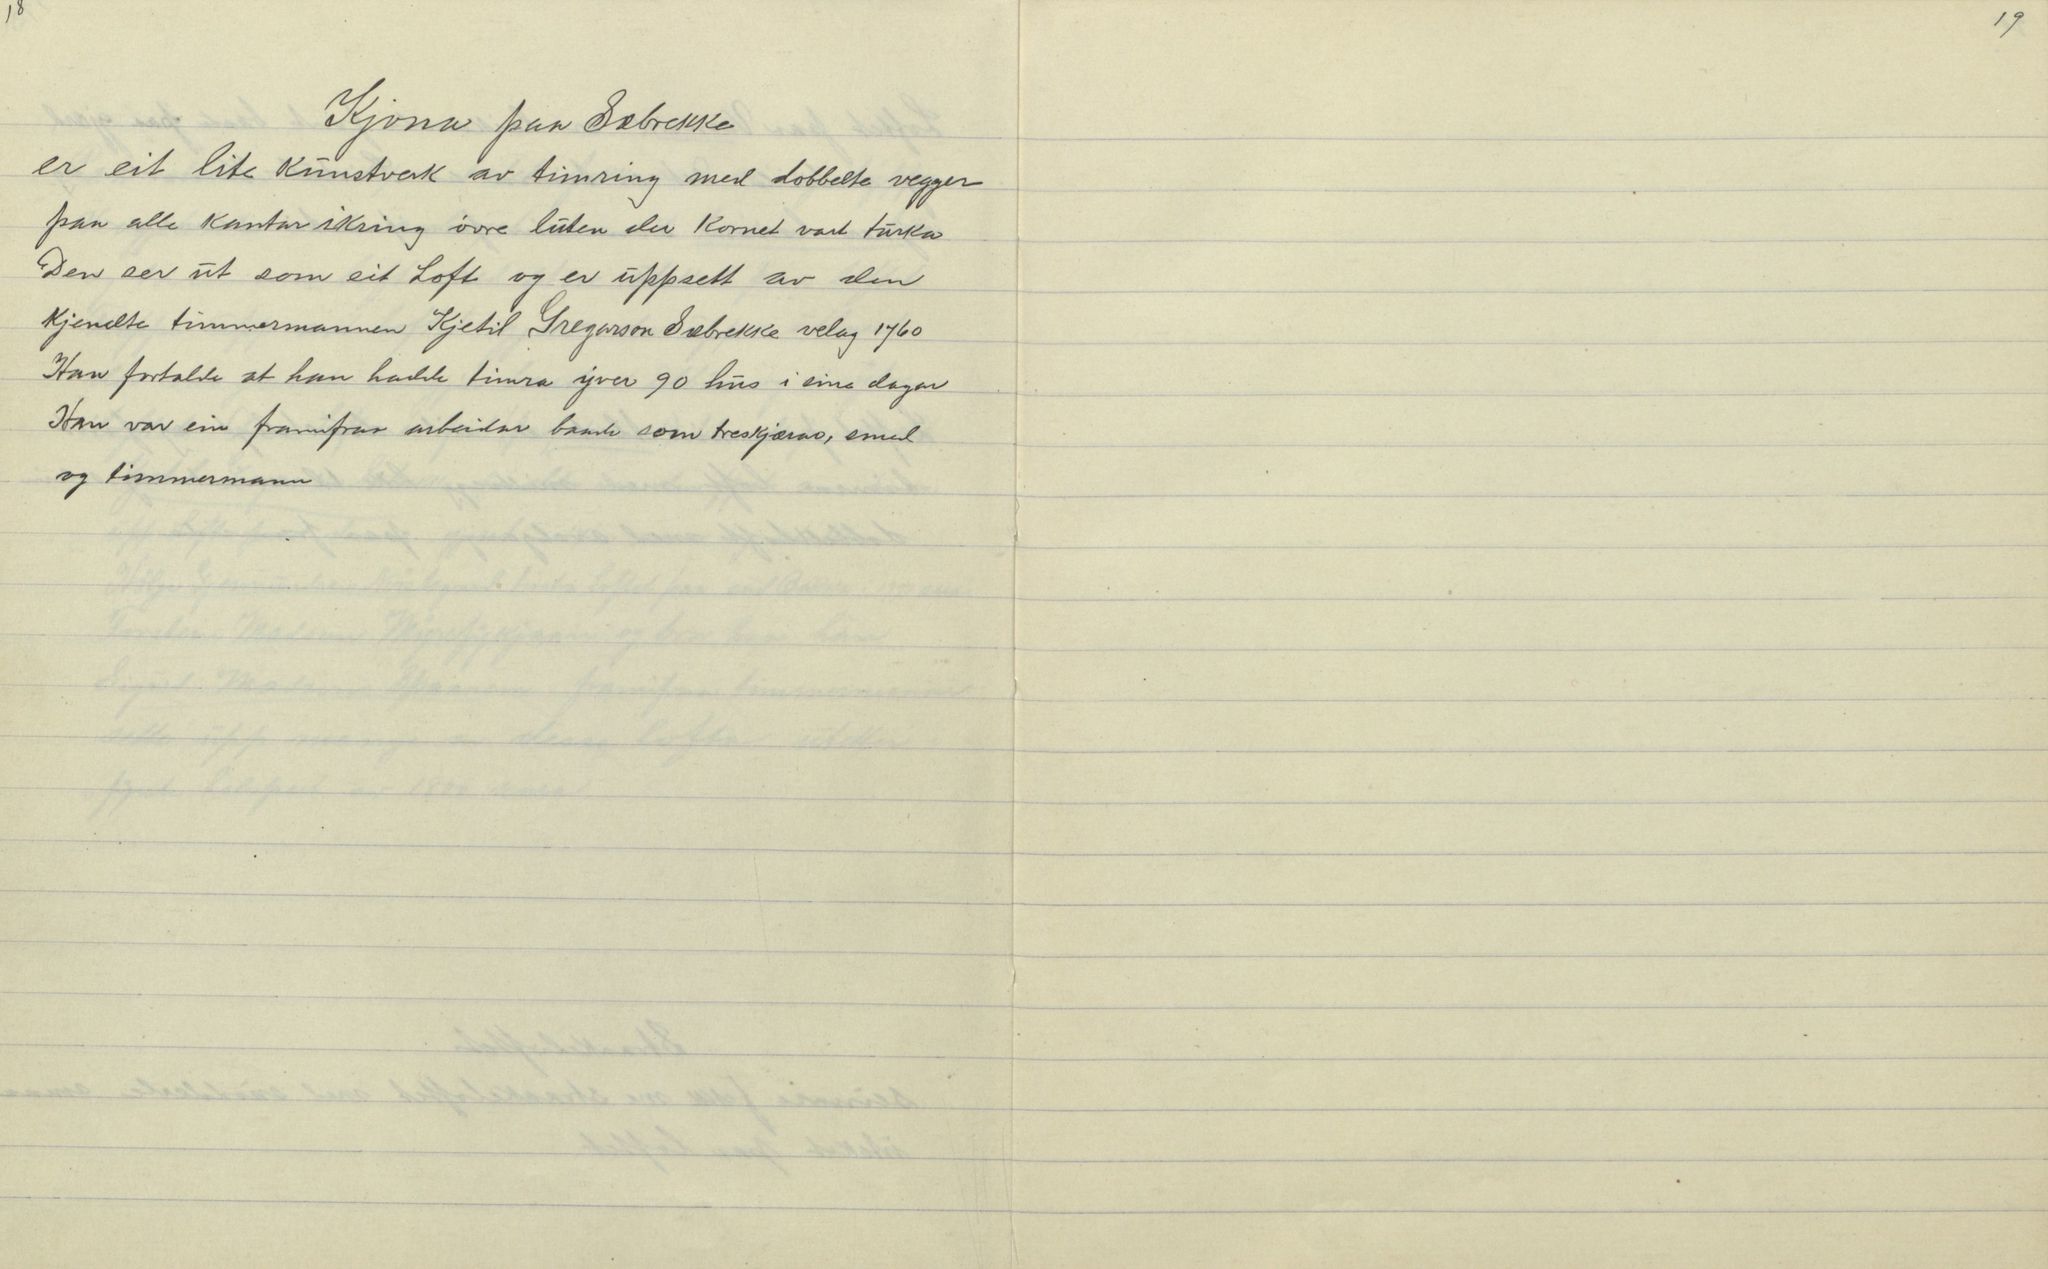 18
19
Kjona paa Sæbrekke
er eit lite kunstverk av timring med dobbelte vegger
paa alle kantar ikring övre luten der kornet vart turka
Den ser ut som eit Loft og er uppsett av den
kjendte timmermannen Kjetil Gregarson Sæbrekke velag 1760
Han fortalde at han hadde timra yver 90 hus i sine dagar
Han var ein framifraa arbeidar baade som treskjærar, smed
og timmermann